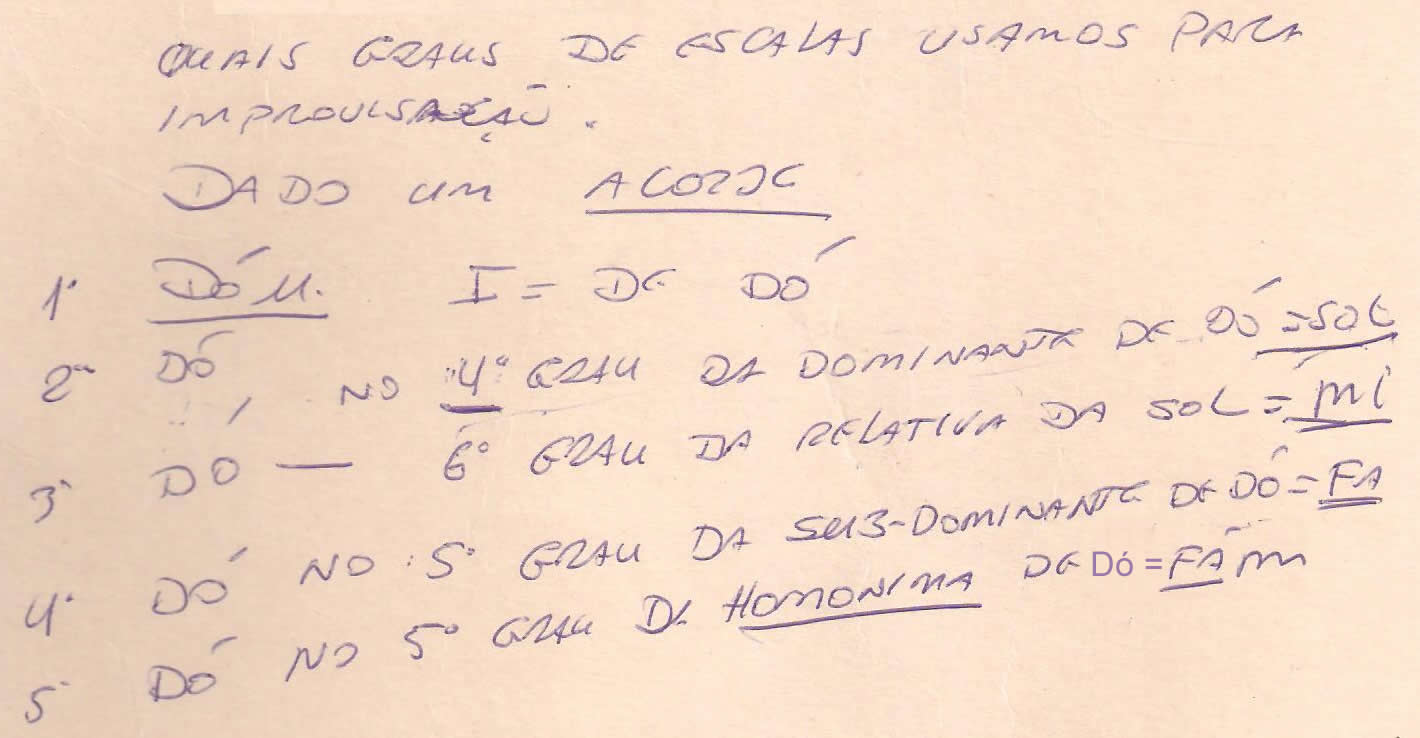 QUAIS GRAUS DE ESCALAS USAMOS PARA
IMPROVISAÇÃO.
DADO UM ACORDE
1º DÓ M. I = DE DÓ
2º DÓ NO 4º GRAU DA DOMINANTE DE DÓ = SOL
3º DÓ — 6º GRAU DA RELATIVA DA SOL = MI
4º DÓ NO 5º GRAU DA SUB-DOMINANTE DE DÓ = FÁ
5º DÓ NO 5º GRAU DA HOMONIMA DE Dó = FÁ m